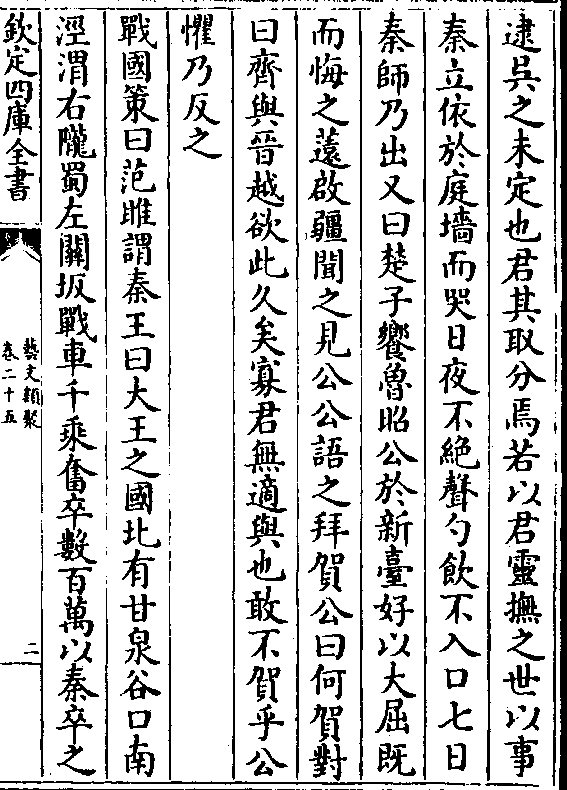 逮吳之未定也君其取分焉若以君靈撫之世以事
秦立依於庭墻而哭日夜不絶聲勺飲不入口七日
秦師乃出又曰楚子饗魯昭公於新臺好以大屈既
而悔之薳啟疆聞之見公公語之拜賀公曰何賀對
曰齊與晉越欲此久矣寡君無適與也敢不賀乎公
懼乃反之
戰國策曰范雎謂秦王曰大王之國北有甘泉谷口南
涇渭右隴蜀左關坂戰車千乘奮卒數百萬以秦卒之
欽定四庫全書
藝文類聚
卷二十五
二